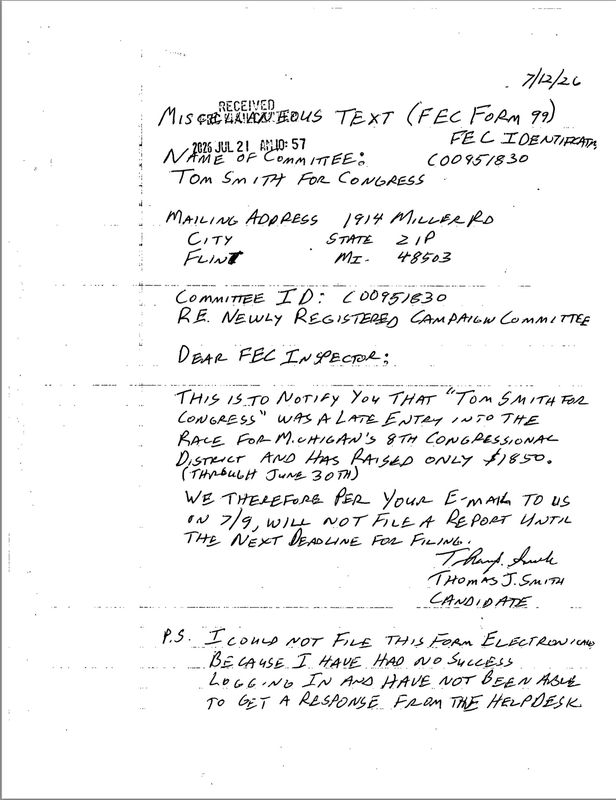 7/12/26
RECEIVED
MISCELLANEOUS TEXT (FEC FORM 99)
FEC IDENTIFICATN
2026 JUL 21 AM 10:57
NAME OF COMMITTEE: C00951830
TOM SMITH FOR CONGRESS
MAILING ADDRESS 1914 MILLER RD
CITY STATE ZIP
FLINT MI- 48503
COMMITTEE ID: C00951830
RE. NEWLY REGISTERED CAMPAIGN COMMITTEE
DEAR FEC INSPECTOR:
THIS IS TO NOTIFY YOU THAT "TOM SMITH FOR
CONGRESS" WAS A LATE ENTRY INTO THE
RACE FOR MICHIGAN'S 8TH CONGRESSIONAL
DISTRICT AND HAS RAISED ONLY $1850.
(THROUGH JUNE 30TH)
WE THEREFORE PER YOUR E-MAIL TO US
ON 7/9, WILL NOT FILE A REPORT UNTIL
THE NEXT DEADLINE FOR FILING.
THOMAS J. SMITH
CANDIDATE
P.S. I COULD NOT FILE THIS FORM ELECTRONICALLY
BECAUSE I HAVE HAD NO SUCCESS
LOGGING IN AND HAVE NOT BEEN ABLE
TO GET A RESPONSE FROM THE HELPDESK